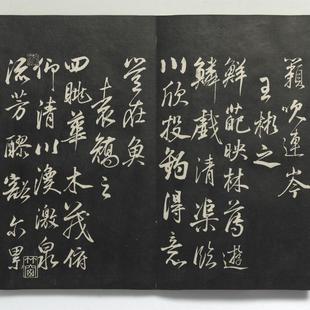 籟吹連岑
王彬之
鮮葩映林薄遊
鱗戲清渠臨
川欣投釣得意
豈在魚
袁嶠之
四眺華木茂俯
仰清川渙激泉
流芳醪豁尔累